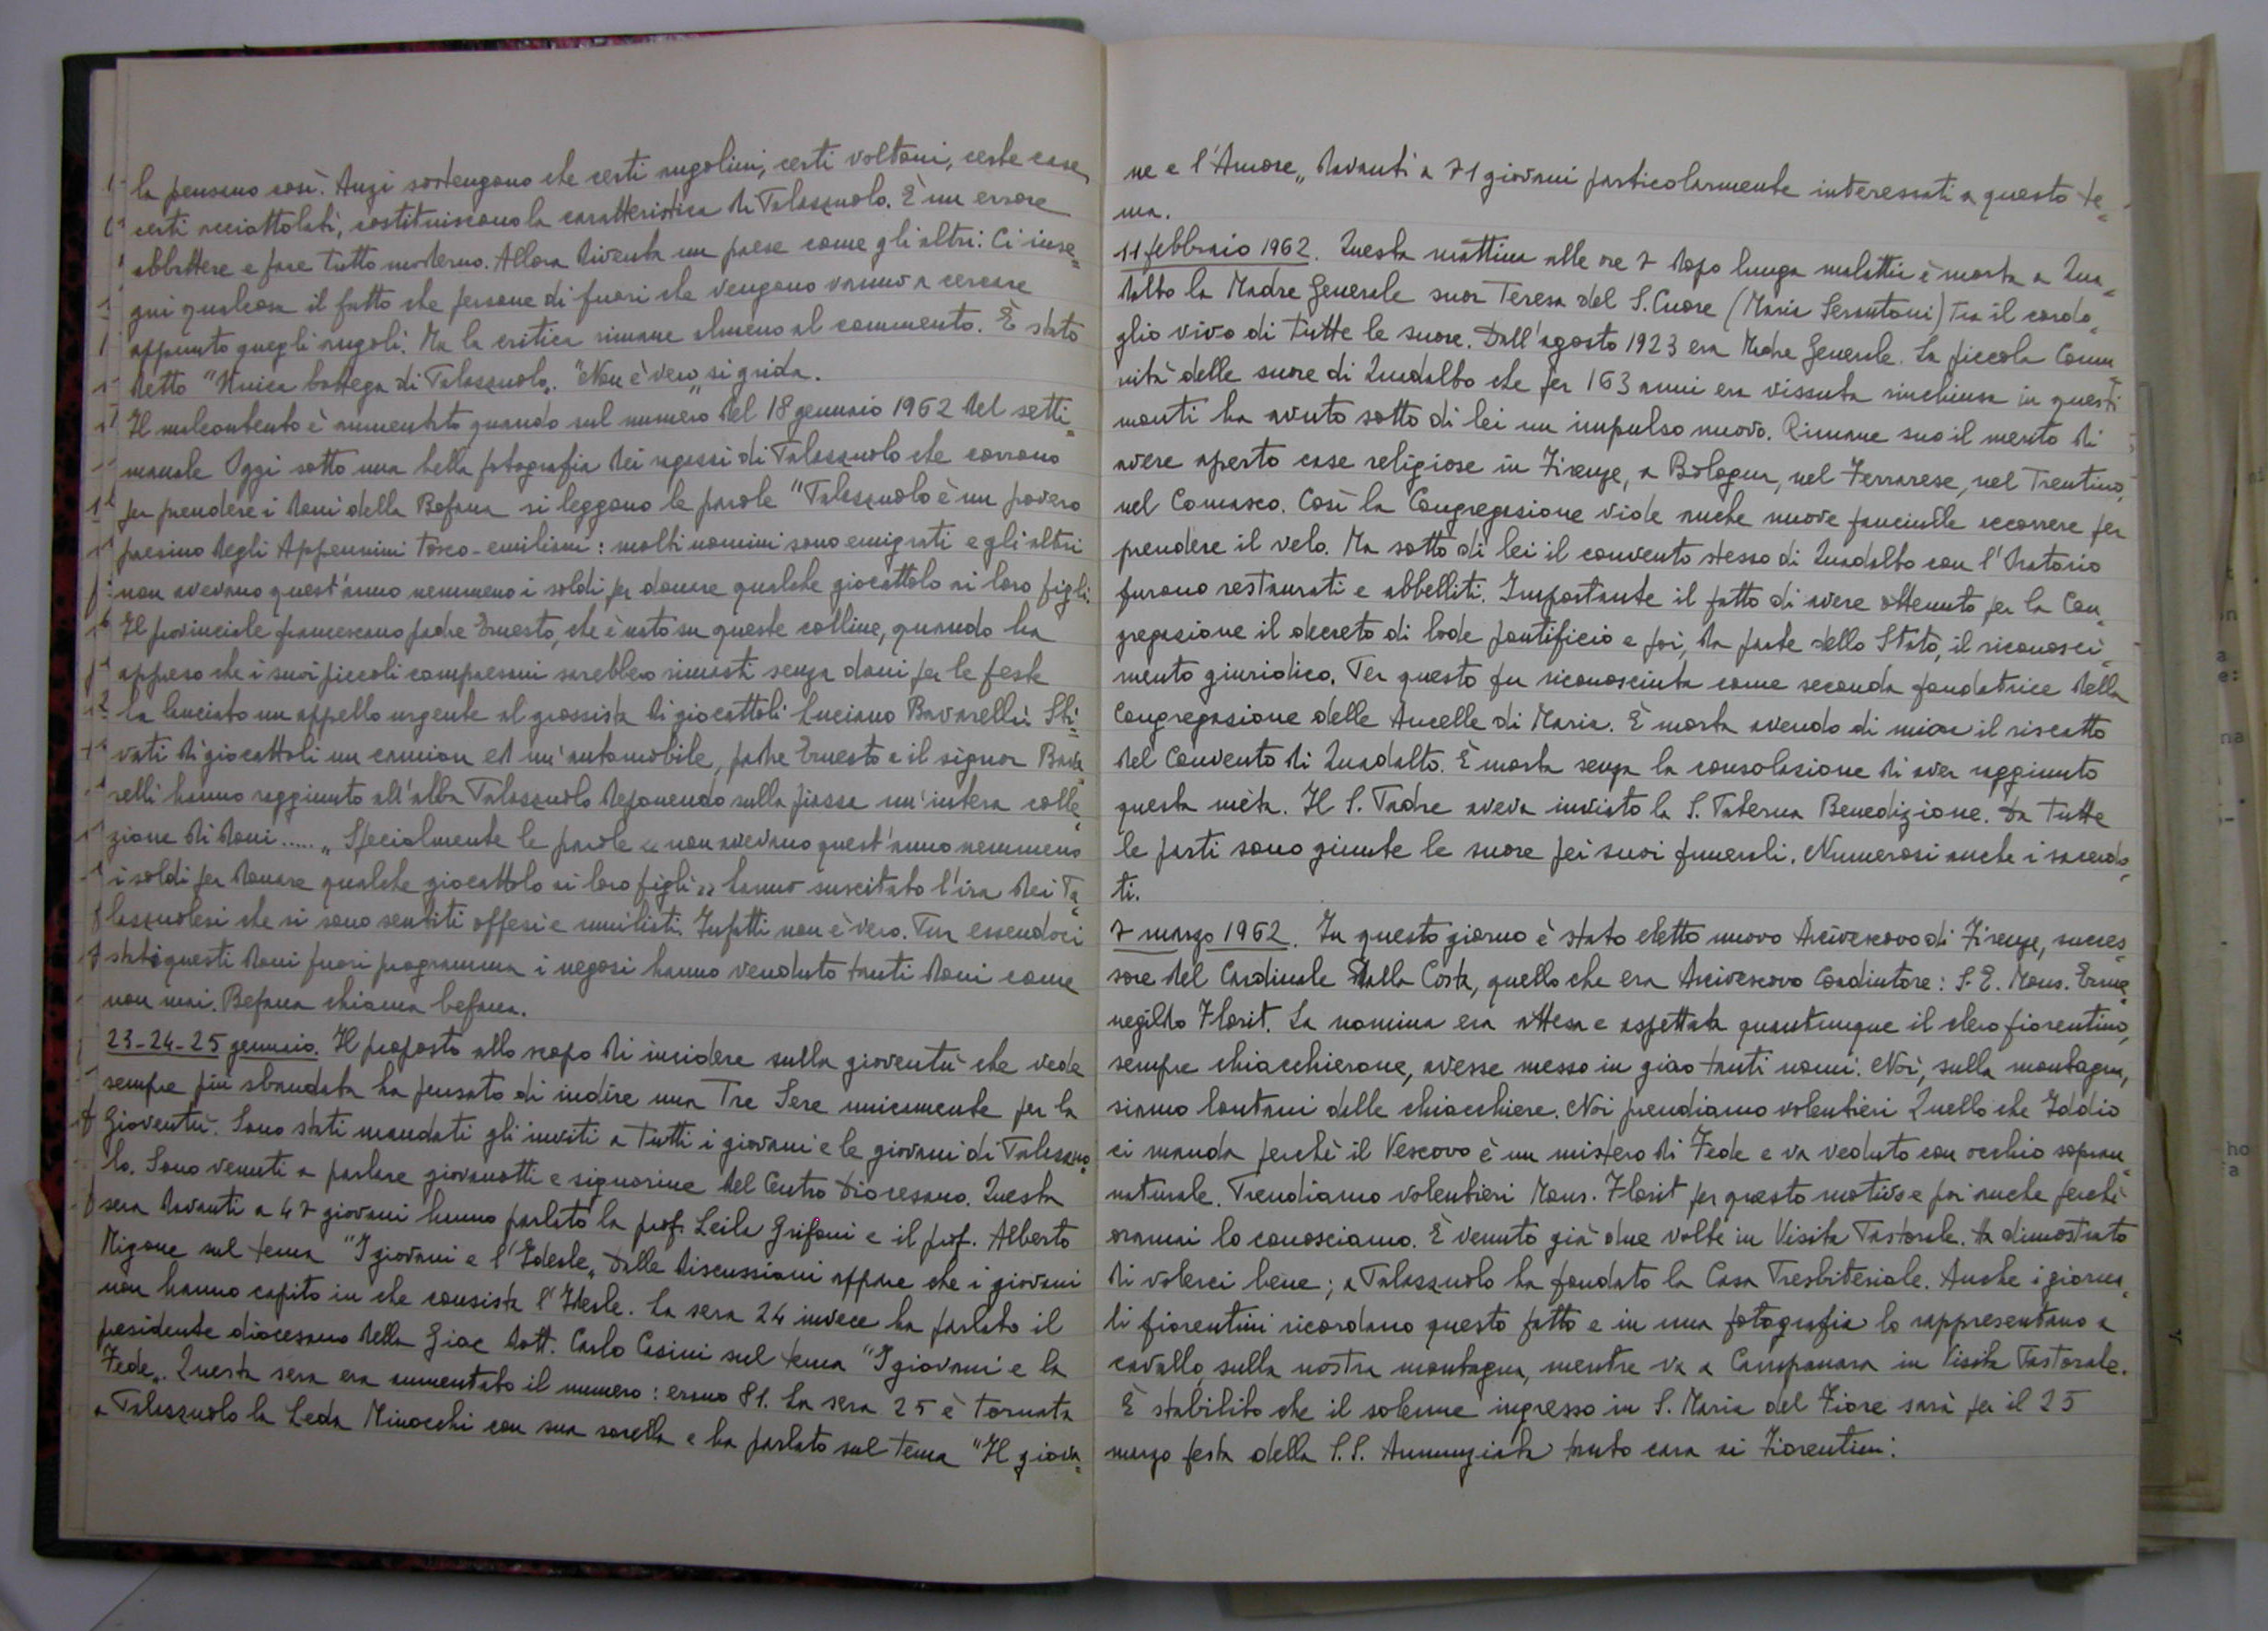 la pensano così. Anzi sostengono che certi angolini, certi voltoni, certe case,
certi acciottolati, costituiscono la caratteristica di Palazzuolo. È un errore
abbattere e fare tutto moderno. Allora diventa un paese come gli altri. Ci inse=
gni qualcosa il fatto che persone di fuori che vengono vanno a cercare
appunto quegli angoli. Ma la critica rimane almeno al commento. È stato
detto "Unica bottega di Palazzuolo". "Non è vero" si grida.
Il malcontento è aumentato quando sul numero del 18 gennaio 1962 del setti=
manale Oggi sotto una bella fotografia dei ragazzi di Palazzuolo che corrono
per prendere i doni della Befana si leggono le parole "Palazzuolo è un povero
paesino degli Appennini tosco-emiliani: molti uomini sono emigrati e gli altri
non avevano quest'anno nemmeno i soldi per donare qualche giocattolo ai loro figli.
Il provinciale francescano padre Ernesto, che è nato su queste colline, quando ha
appreso che i suoi piccoli compaesani sarebbero rimasti senza doni per le feste
ha lanciato un appello urgente al grossista di giocattoli Luciano Bavarelli. Sti=
vati di giocattoli un camion ed un'automobile, padre Ernesto e il signor Bava=
relli hanno raggiunto all'alba Palazzuolo deponendo sulla piazza un'intera colle=
zione di doni....." Specialmente le parole << non avevano quest'anno nemmeno
i soldi per donare qualche giocattolo ai loro figli >> hanno suscitato l'ira dei Pa=
lazzuolesi che si sono sentiti offesi e umiliati. Infatti non è vero. Pur essendoci
stati questi doni fuori programma i negozi hanno venduto tanti doni come
non mai. Befana chiama befana.
23-24-25 gennaio. Il proposto allo scopo di incidere sulla gioventù che vede
sempre più sbandata ha pensato di indire una Tre Sere unicamente per la
Gioventù. Sono stati mandati gli inviti a tutti i giovani e le giovani di Palazzuo=
lo. Sono venuti a parlare giovanotti e signorine del Centro Diocesano. Questa
sera davanti a 47 giovani hanno parlato la prof. Leila Grifoni e il prof. Alberto
Migone sul tema "I giovani e l'Ideale". Dalle discussioni appare che i giovani
non hanno capito in che consista l'Ideale. La sera 24 invece ha parlato il
presidente diocesano della Giac dott. Carlo Casini sul tema "I giovani e la
Fede". Questa sera era aumentato il numero: erano 81. La sera 25 è tornata
a Palazzuolo la Leda Minocchi con sua sorella e ha parlato sul tema "Il giova=
ne e l'Amore" davanti a 71 giovani particolarmente interessati a questo te=
ma.
11 febbraio 1962. Questa mattina alle ore 7 dopo lunga malattia è morta a Qua=
dalto la Madre Generale suor Teresa del S. Cuore (Maria Serantoni) tra il cordo=
glio vivo di tutte le suore. Dall'agosto 1923 era Madre Generale. La piccola Comu=
nità delle suore di Quadalto che per 163 anni era vissuta rinchiusa in questi
monti ha avuto sotto di lei un impulso nuovo. Rimane suo il merito di
avere aperto case religiose in Firenze, a Bologna, nel Ferrarese, nel Trentino,
nel Comasco. Così la Congregazione vide anche nuove fanciulle accorrere per
prendere il velo. Ma sotto di lei il convento stesso di Quadalto con l'Oratorio
furono restaurati e abbelliti. Importante il fatto di avere ottenuto per la Con=
gregazione il decreto di lode pontificio e poi, da parte dello Stato, il riconosci=
mento giuridico. Per questo fu riconosciuta come seconda fondatrice della
Congregazione delle Ancelle di Maria. È morta avendo di mira il riscatto
del Convento di Quadalto. È morta senza la consolazione di aver raggiunto
questa mèta. Il S. Padre aveva inviato la S. Paterna Benedizione. Da tutte
le parti sono giunte le suore pei suoi funerali. Numerosi anche i sacerdo=
ti.
7 marzo 1962. In questo giorno è stato eletto nuovo Arcivescovo di Firenze, succes=
sore del Cardinale Dalla Costa, quello che era Arcivescovo Coadiutore: S. E. Mons. Erme=
negildo Florit. La nomina era attesa e aspettata quantunque il clero fiorentino,
sempre chiacchierone, avesse messo in giro tanti nomi. Noi, sulla montagna,
siamo lontani dalle chiacchiere. Noi prendiamo volentieri Quello che Iddio
ci manda perchè il Vescovo è un mistero di Fede e va veduto con occhio sopran=
naturale. Prendiamo volentieri Mons. Florit per questo motivo e poi anche perchè
oramai lo conosciamo. È venuto già due volte in Visita Pastorale. Ha dimostrato
di volerci bene; a Palazzuolo ha fondato la Casa Presbiteriale. Anche i giorna=
li fiorentini ricordano questo fatto e in una fotografia lo rappresentano a
cavallo, sulla nostra montagna, mentre va a Campanara in Visita Pastorale.
È stabilito che il solenne ingresso in S. Maria del Fiore sarà per il 25
marzo festa della S.S. Annunziata tanto cara ai Fiorentini.